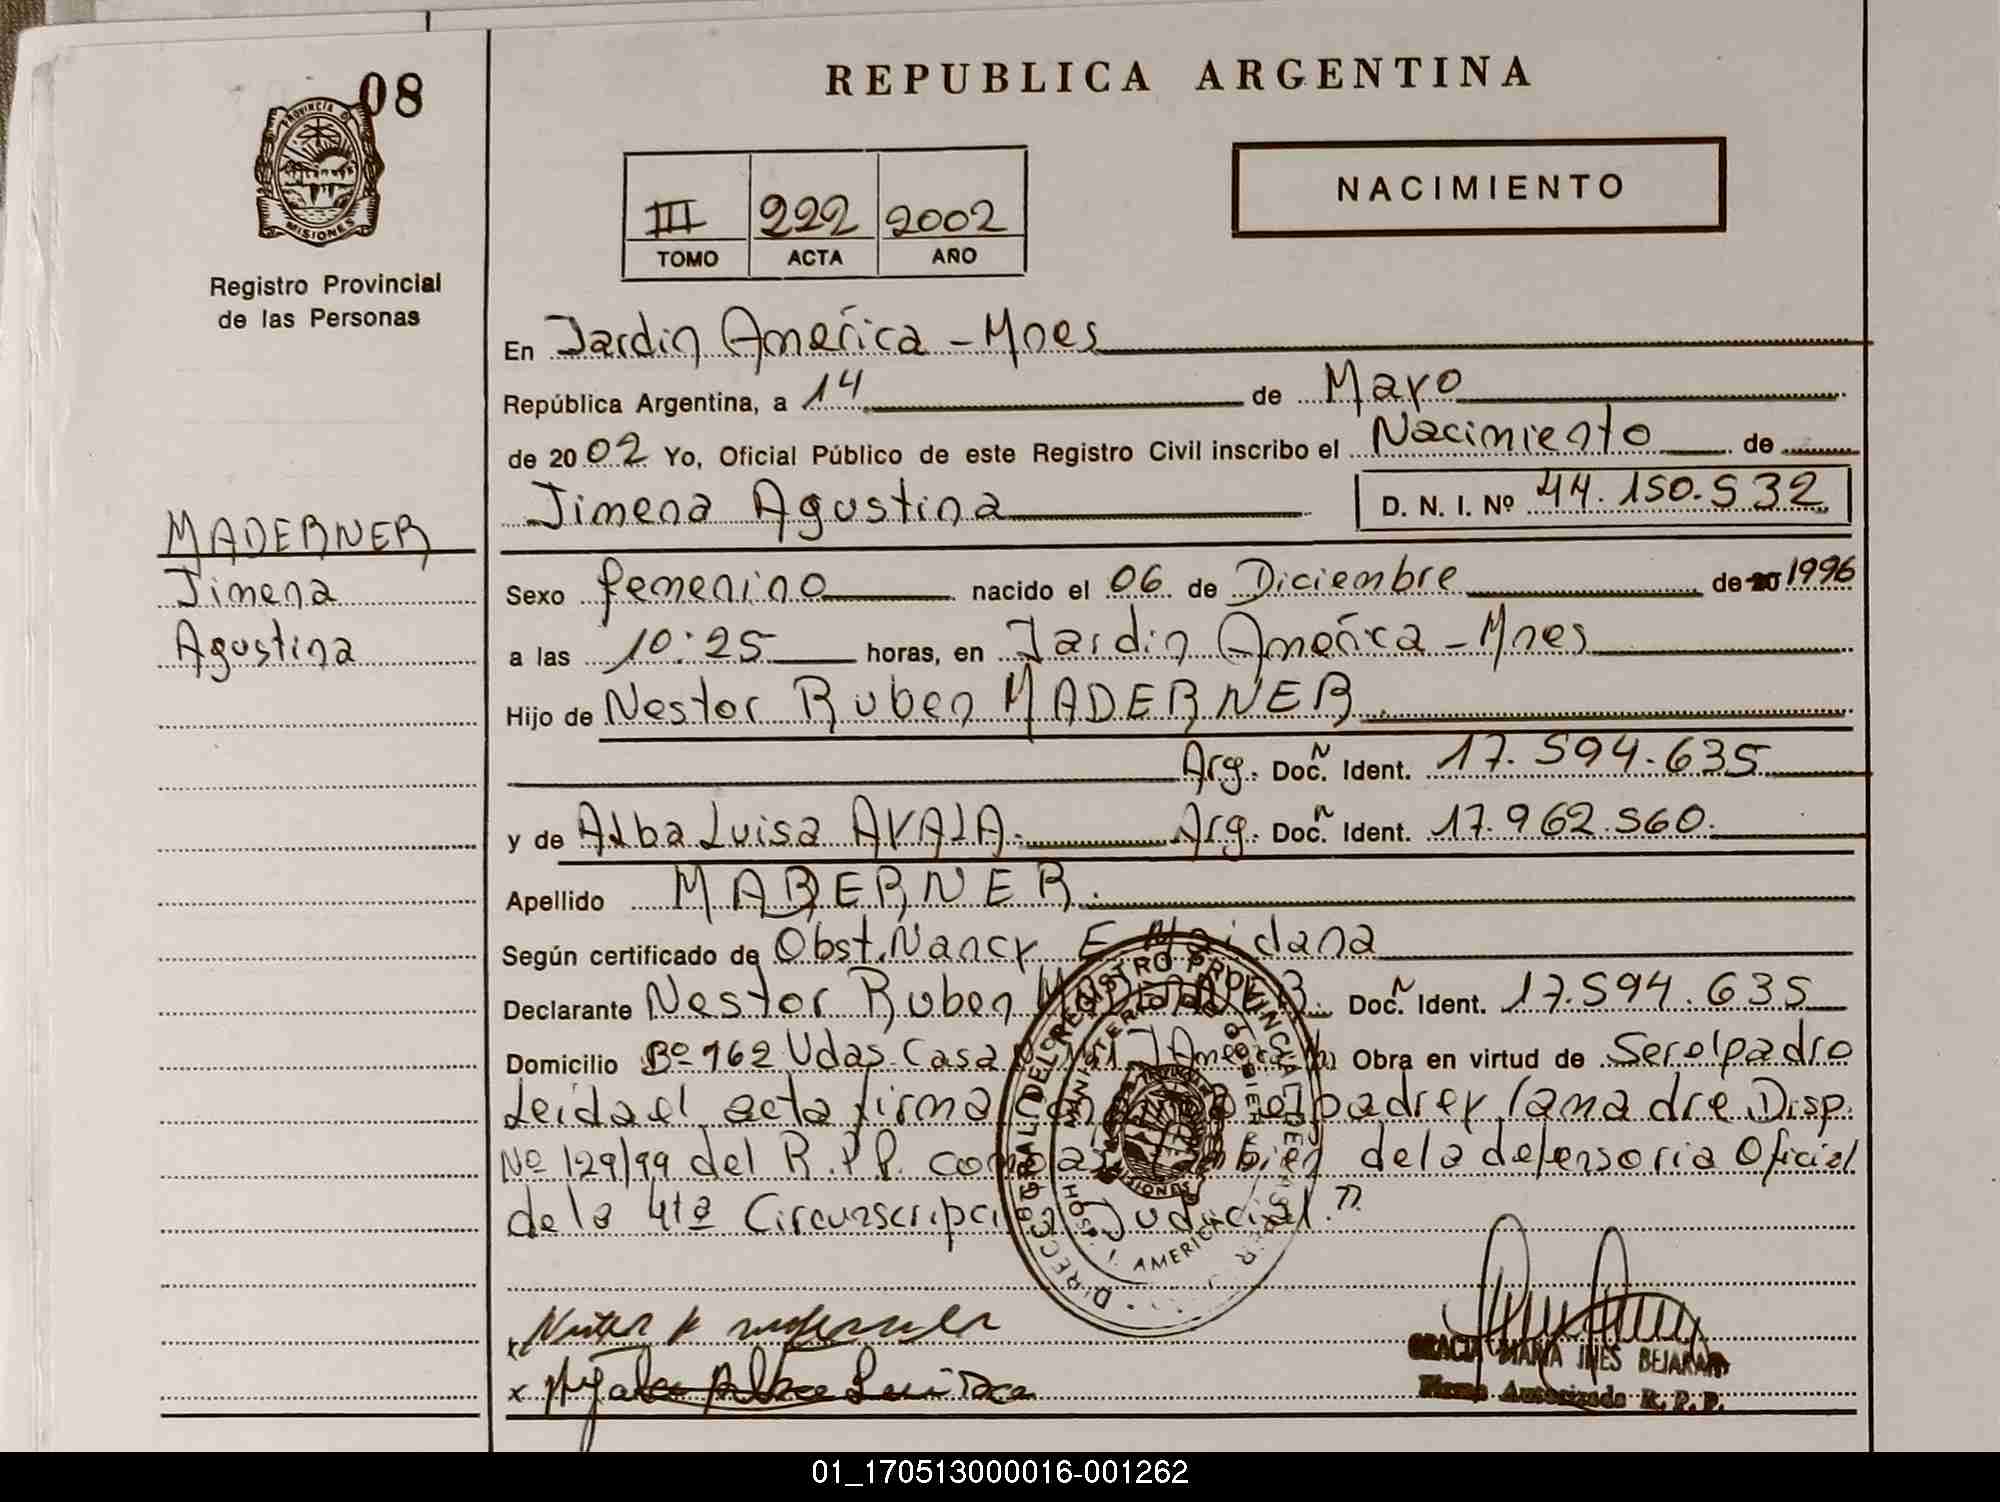 08
PROVINCIA DE
MISIONES
Registro Provincial
de las Personas
MADERNER
Jimena
Agustina
REPUBLICA ARGENTINA
III 222 2002
TOMO ACTA AÑO
NACIMIENTO
En Jardin América - Mnes
República Argentina, a 14 de Mayo
de 2002 Yo, Oficial Público de este Registro Civil inscribo el Nacimiento de
Jimena Agustina D. N. I. Nº 44.150.532
Sexo femenino nacido el 06 de Diciembre de 20 1996
a las 10:25 horas, en Jardin América - Mnes
Hijo de Nestor Ruben MADERNER
Arg. Doc. Ident. 17.594.635
y de Alba Luisa AYALA. Arg. Doc. Ident. 17.962.560.
Apellido MADERNER.
Según certificado de Obst. Nancy E Maidana
Declarante Nestor Ruben Doc. Ident. 17.594.635
Domicilio Bº 162 Vdas. Casa Obra en virtud de Ser el padre
Leida el acta firma el padre y la madre Disp.
Nº 129/99 del R.P.P. como asi tambien de la defensoria Oficial
de la 4ta Circunscripcion Judicial."
DIRECC GRAL DEL REGISTRO PROVINCIAL DE
MINISTERIO DE GOBIERNO
MISIONES
HOSP. J. AMERICA
GRACIA MARIA INES BEJARANO
Firma Autorizada R. P. P.
x Alba Luisa
01_170513000016-001262